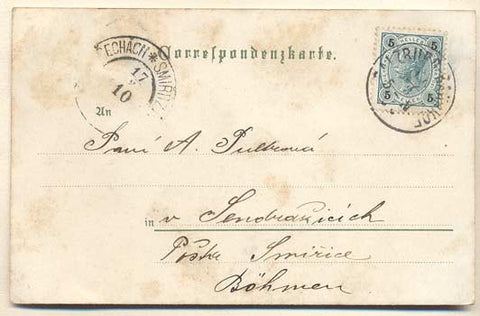 Correspondenzkarte.
ECHÁCH * SMIŘITZ
17
10
5 5
5 5
An
Paní A.
in v Sendražicích
Pošta Smiřice
Böhmen